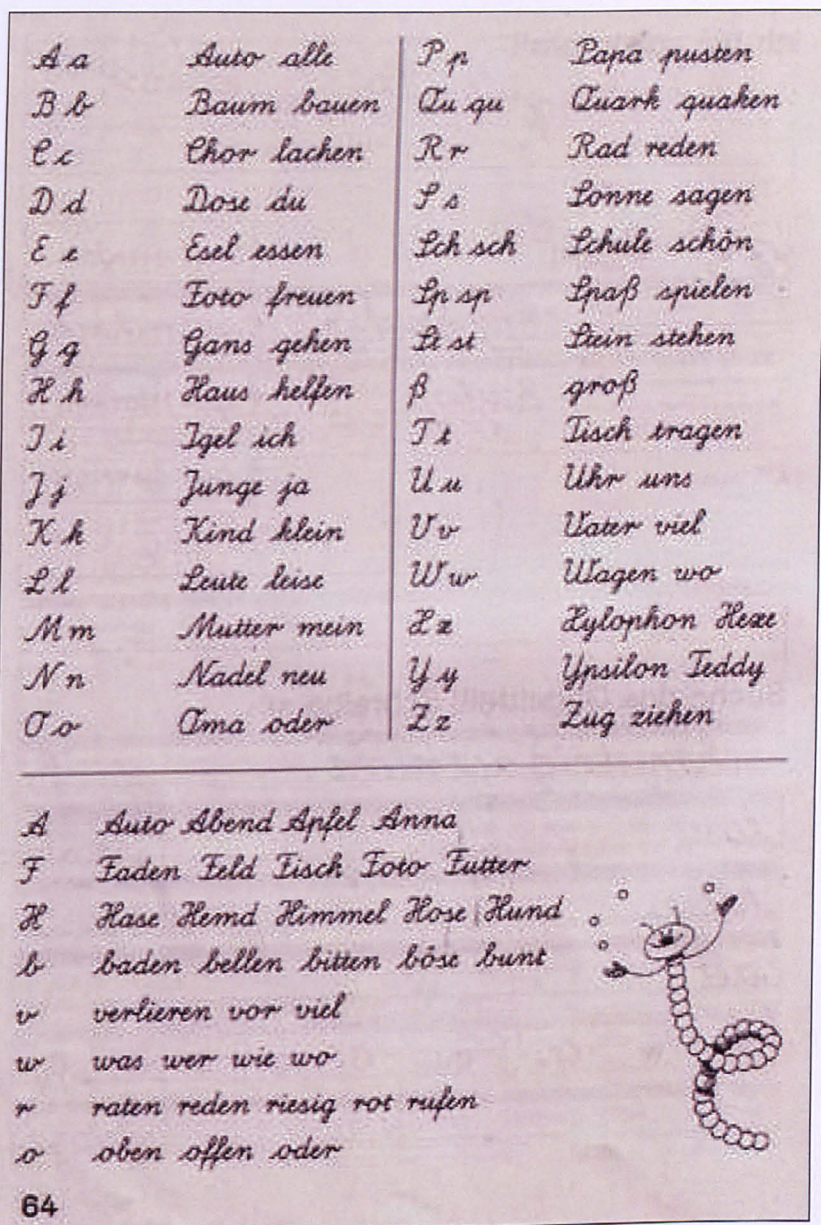 A a Auto alle
B b Baum bauen
C c Chor lachen
D d Dose du
E e Esel essen
F f Foto freuen
G g Gans gehen
H h Haus helfen
I i Igel ich
J j Junge ja
K k Kind klein
L l Leute leise
M m Mutter mein
N n Nadel neu
O o Oma oder
P p Papa pusten
Qu qu Quark quaken
R r Rad reden
S s Sonne sagen
Sch sch Schule schön
Sp sp Spaß spielen
St st Stein stehen
ß groß
T t Tisch tragen
U u Uhr uns
V v Vater viel
W w Wagen wo
X x Xylophon Hexe
Y y Ypsilon Teddy
Z z Zug ziehen
A Auto Abend Apfel Anna
F Faden Feld Fisch Foto Futter
H Hase Hemd Himmel Hose Hund
b baden bellen bitten böse bunt
v verlieren vor viel
w was wer wie wo
r raten reden riesig rot rufen
o oben offen oder
64